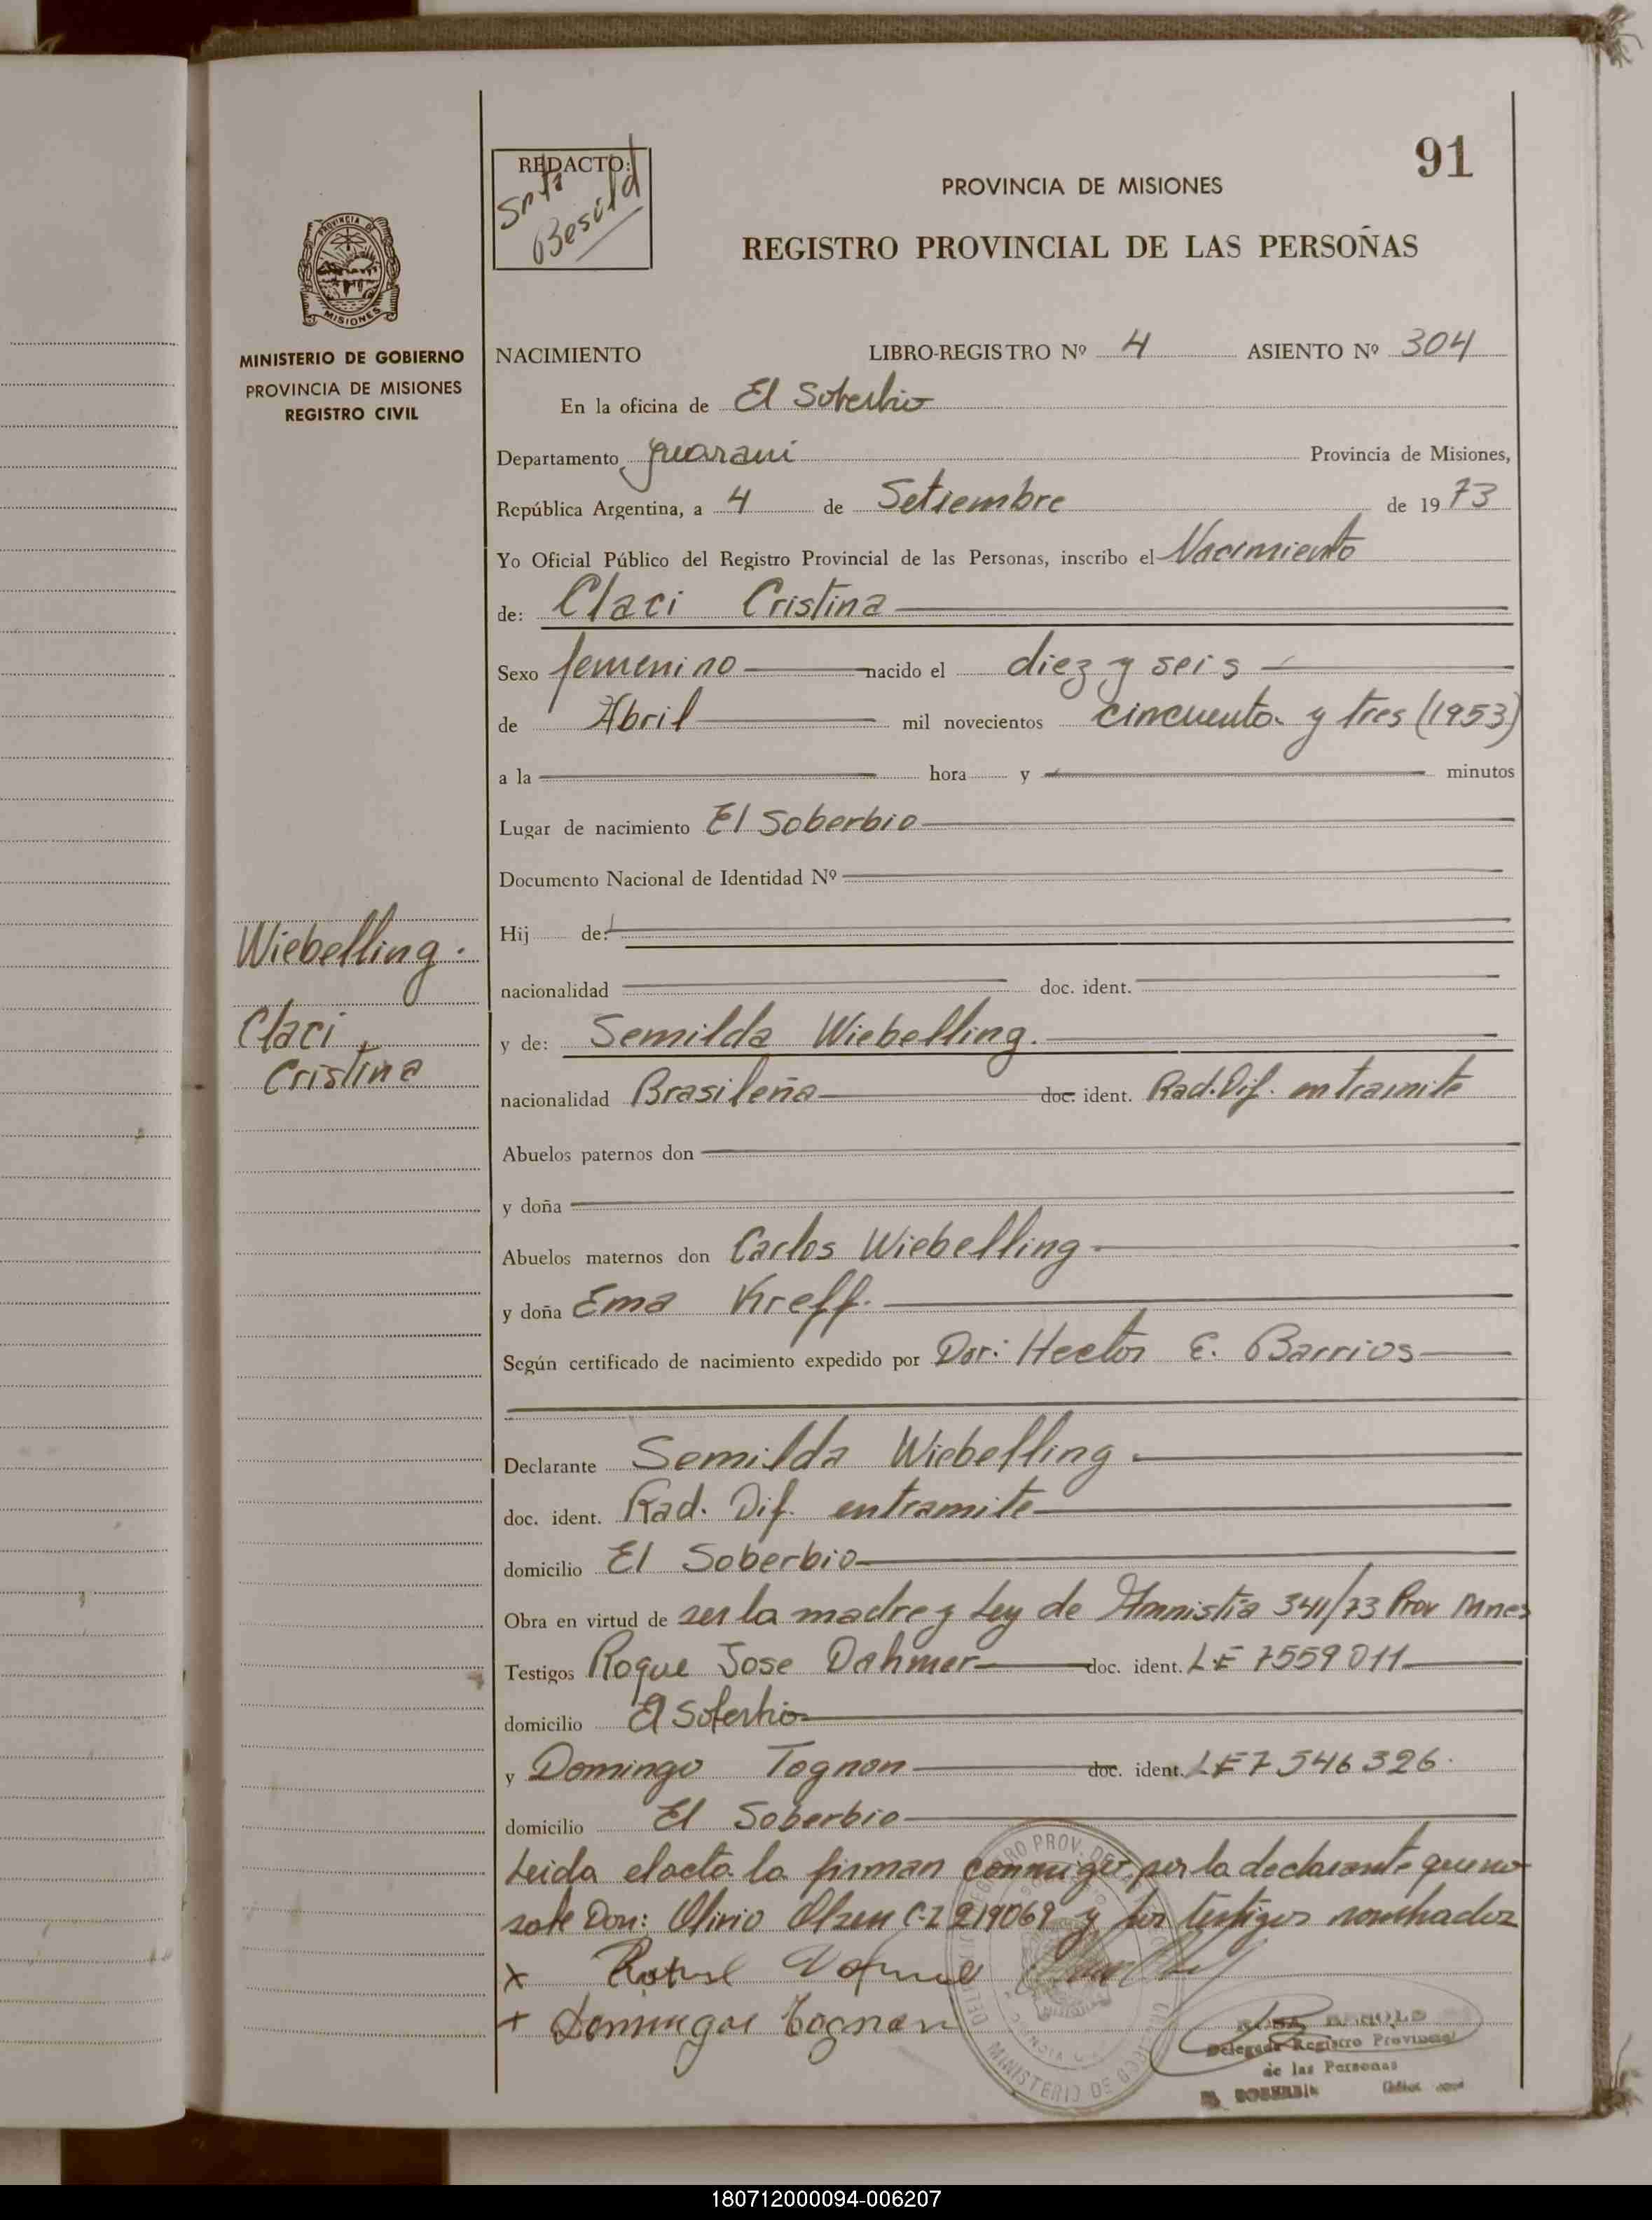 91
REDACTO:
Srta
Besold
PROVINCIA DE MISIONES
REGISTRO PROVINCIAL DE LAS PERSOÑAS
PROVINCIA DE
MISIONES
MINISTERIO DE GOBIERNO
PROVINCIA DE MISIONES
REGISTRO CIVIL
NACIMIENTO LIBRO-REGISTRO Nº 4 ASIENTO Nº 304
En la oficina de El Soberbio
Departamento guarani Provincia de Misiones,
República Argentina, a 4 de Setiembre de 1973
Yo Oficial Público del Registro Provincial de las Personas, inscribo el Nacimiento
de: Claci Cristina
Sexo femenino nacido el diez y seis
de Abril mil novecientos cincuenta y tres (1953)
a la hora y minutos
Lugar de nacimiento El Soberbio
Documento Nacional de Identidad Nº
Hij de:
nacionalidad doc. ident.
y de: Semilda Wiebelling.
nacionalidad Brasileña doc. ident. Rad. Dif. en tramite
Abuelos paternos don
y doña
Abuelos maternos don Carlos Wiebelling
y doña Ema Kreff.
Según certificado de nacimiento expedido por Dor: Hector E. Barrios
Declarante Semilda Wiebelling
doc. ident. Rad. Dif. entramite
domicilio El Soberbio
Obra en virtud de ser la madre y Ley de Amnistia 341/73 Prov Mnes
Testigos Roque Jose Dahmer doc. ident. LE 7559011
domicilio El Soberbio
y Domingo Tognon doc. ident. LE 7546326.
domicilio El Soberbio
Leida el acta la firman conmigo, por la declarante que no
sabe Don: Olirio Olsen C-I 219069 y los testigos nombrados
x
+ Domingos Tognon
Delegada Registro Provincial
de las Personas
EL SOBERBIO
Wiebelling.
Claci
Cristina
180712000094-006207